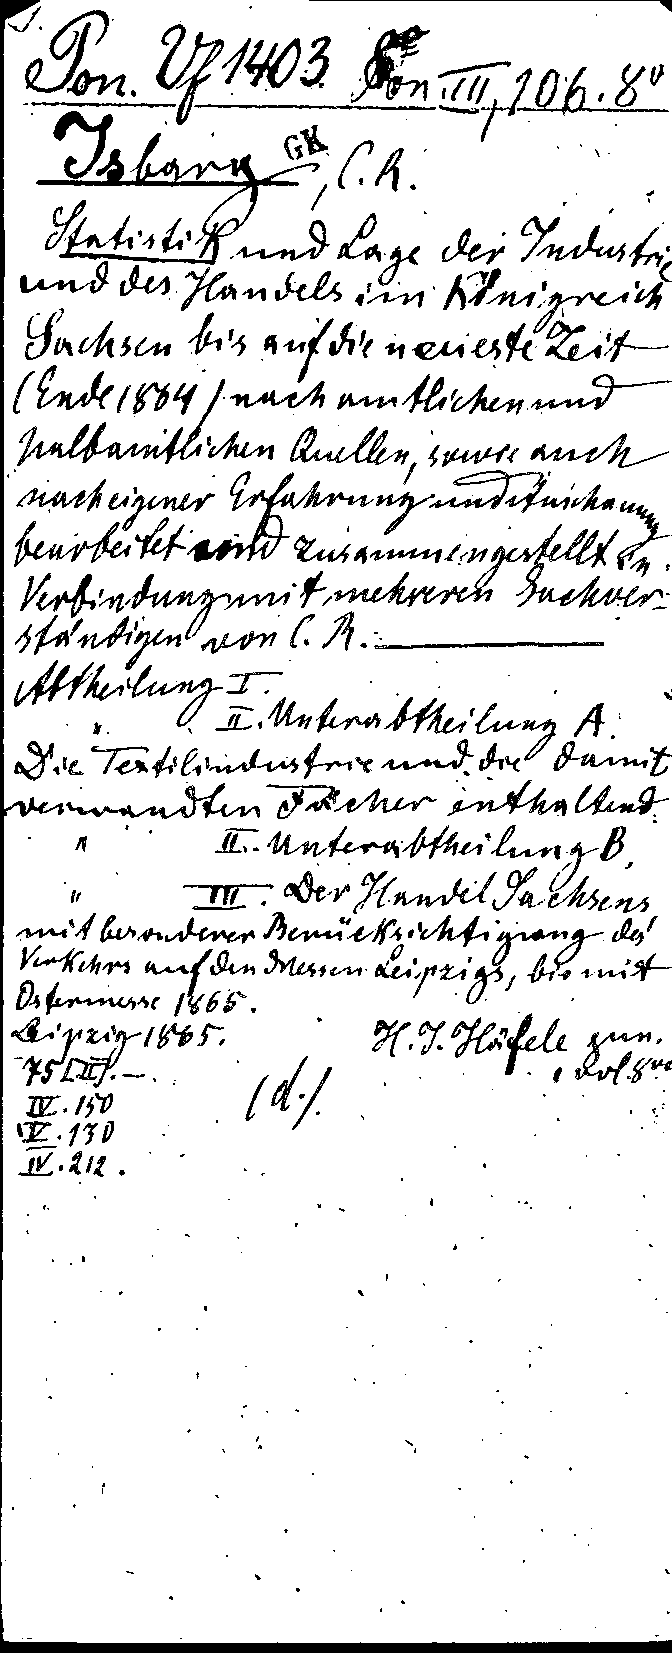 Pon. Vf 1403 Pon. III, 106. 8°
Isbary GK, C. R.
Statistik und Lage der Industrie
und des Handels im Königreich
Sachsen bis auf die neueste Zeit
(Ende 1864) nach amtlichen und
halbamtlichen Quellen, sowie auch
nach eigener Erfahrung und Anschauung
bearbeitet und zusammengestellt in
Verbindung mit mehreren Sachver-
ständigen von C. R. —
Abtheilung I.
" II. Unterabtheilung A.
Die Textilindustrie und die damit
verwandten Fächer enthaltend.
" II. Unterabtheilung B.
" III. Der Handel Sachsens
mit besonderer Berücksichtigung des
Verkehrs auf den Messen Leipzigs, bis mit
Ostermesse 1865.
Leipzig 1865. H. J. Häfele jun.
75 [II]. — , vol. 8vo
IV. 150 (d.)
V. 130
IV. 212.